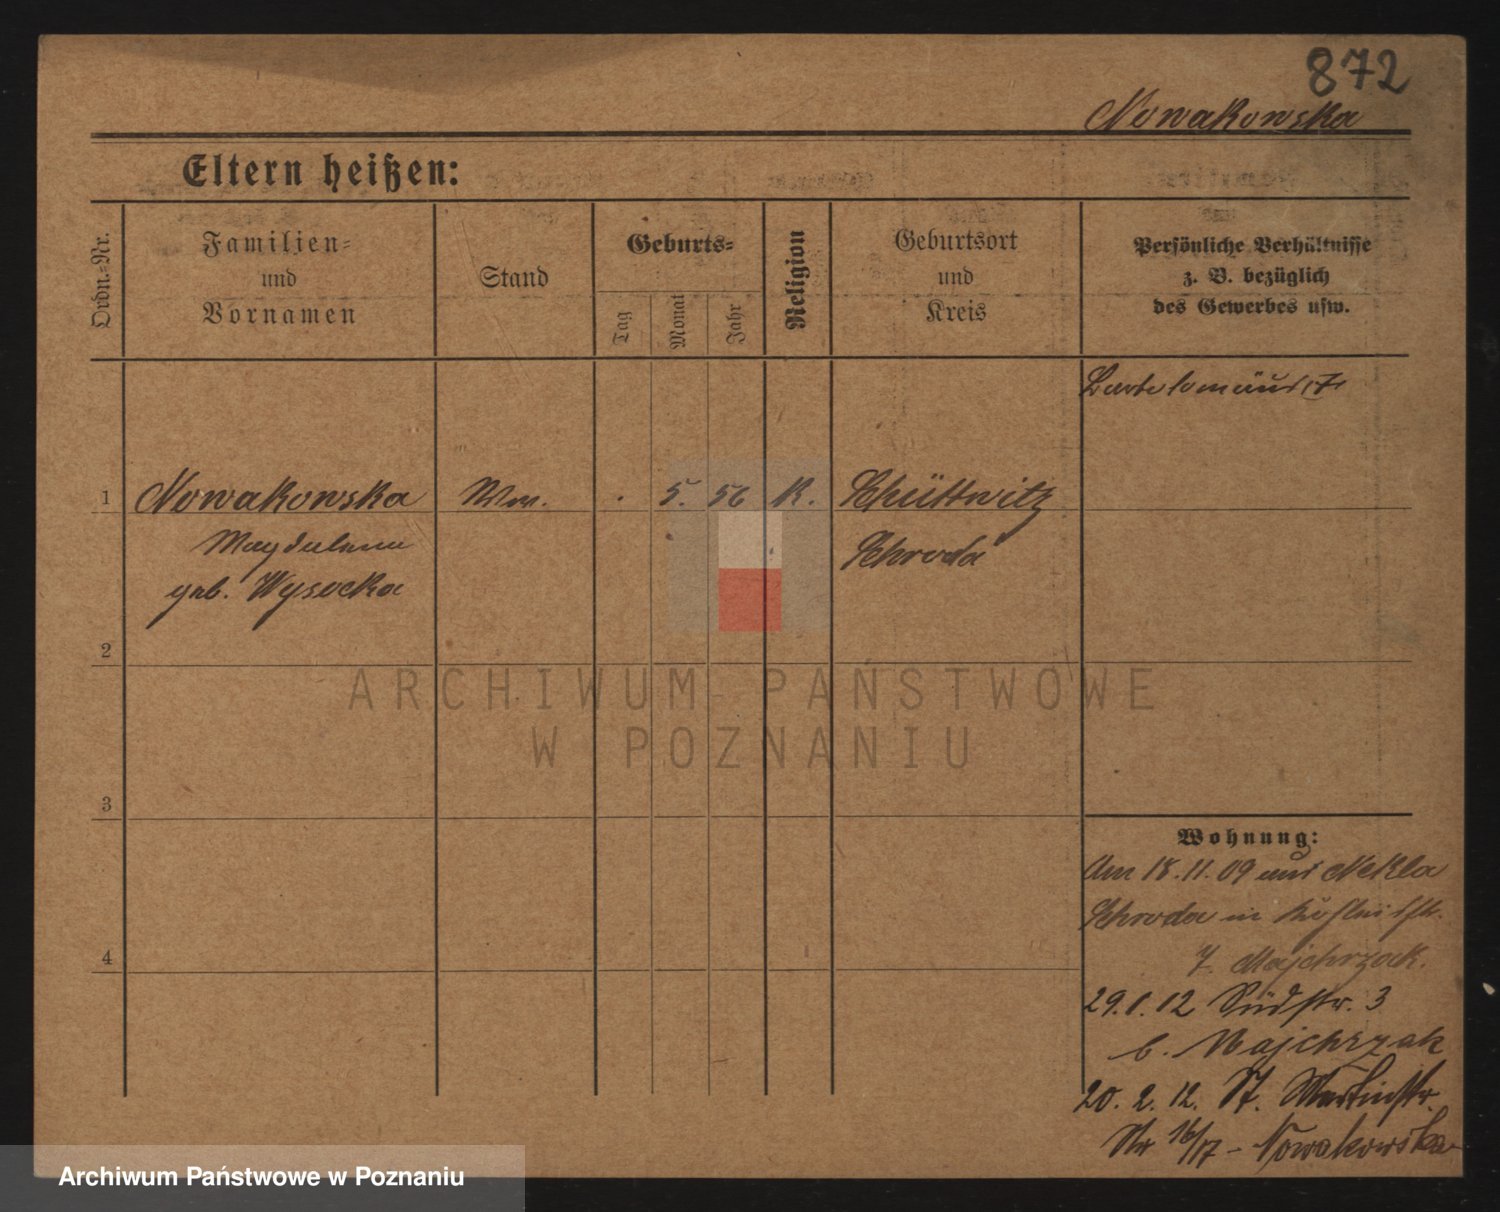 872
Nowakowska
Eltern heißen:
Ordn.-Nr.
Familien-
und
Vornamen
Stand
Geburts-
Tag
Monat
Jahr
Religion
Geburtsort
und
Kreis
Persönliche Verhältnisse
z. B. bezüglich
des Gewerbes usw.
1 Nowakowska Ww. . 5. 56 K. Schüttwitz
Magdalena Schroda
geb. Wysocka
2
3
4
Wohnung:
Am 18.11.09 aus Nekla
Schroda in
7. Majchrzak.
29.1.12 Südstr. 3
b. Majchrzak
20. 2. 12. St. Martinstr.
Nr 16/17 - Nowakowska
ARCHIWUM PAŃSTWOWE
W POZNANIU
Archiwum Państwowe w Poznaniu